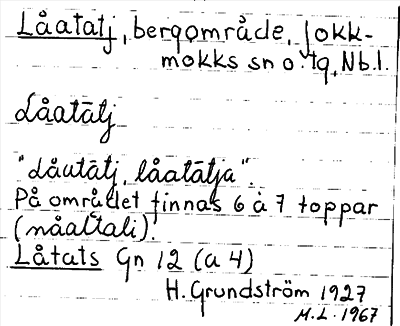 Låatatj, bergområde, Jokk-
mokks sn o. tg, Nb.l.
Låatātj
"låutātj, låatātja".
På området finnas 6 à 7 toppar
(nåaltali).
Låtats Gn 12 (a 4)
H. Grundström 1927
M.L. 1967